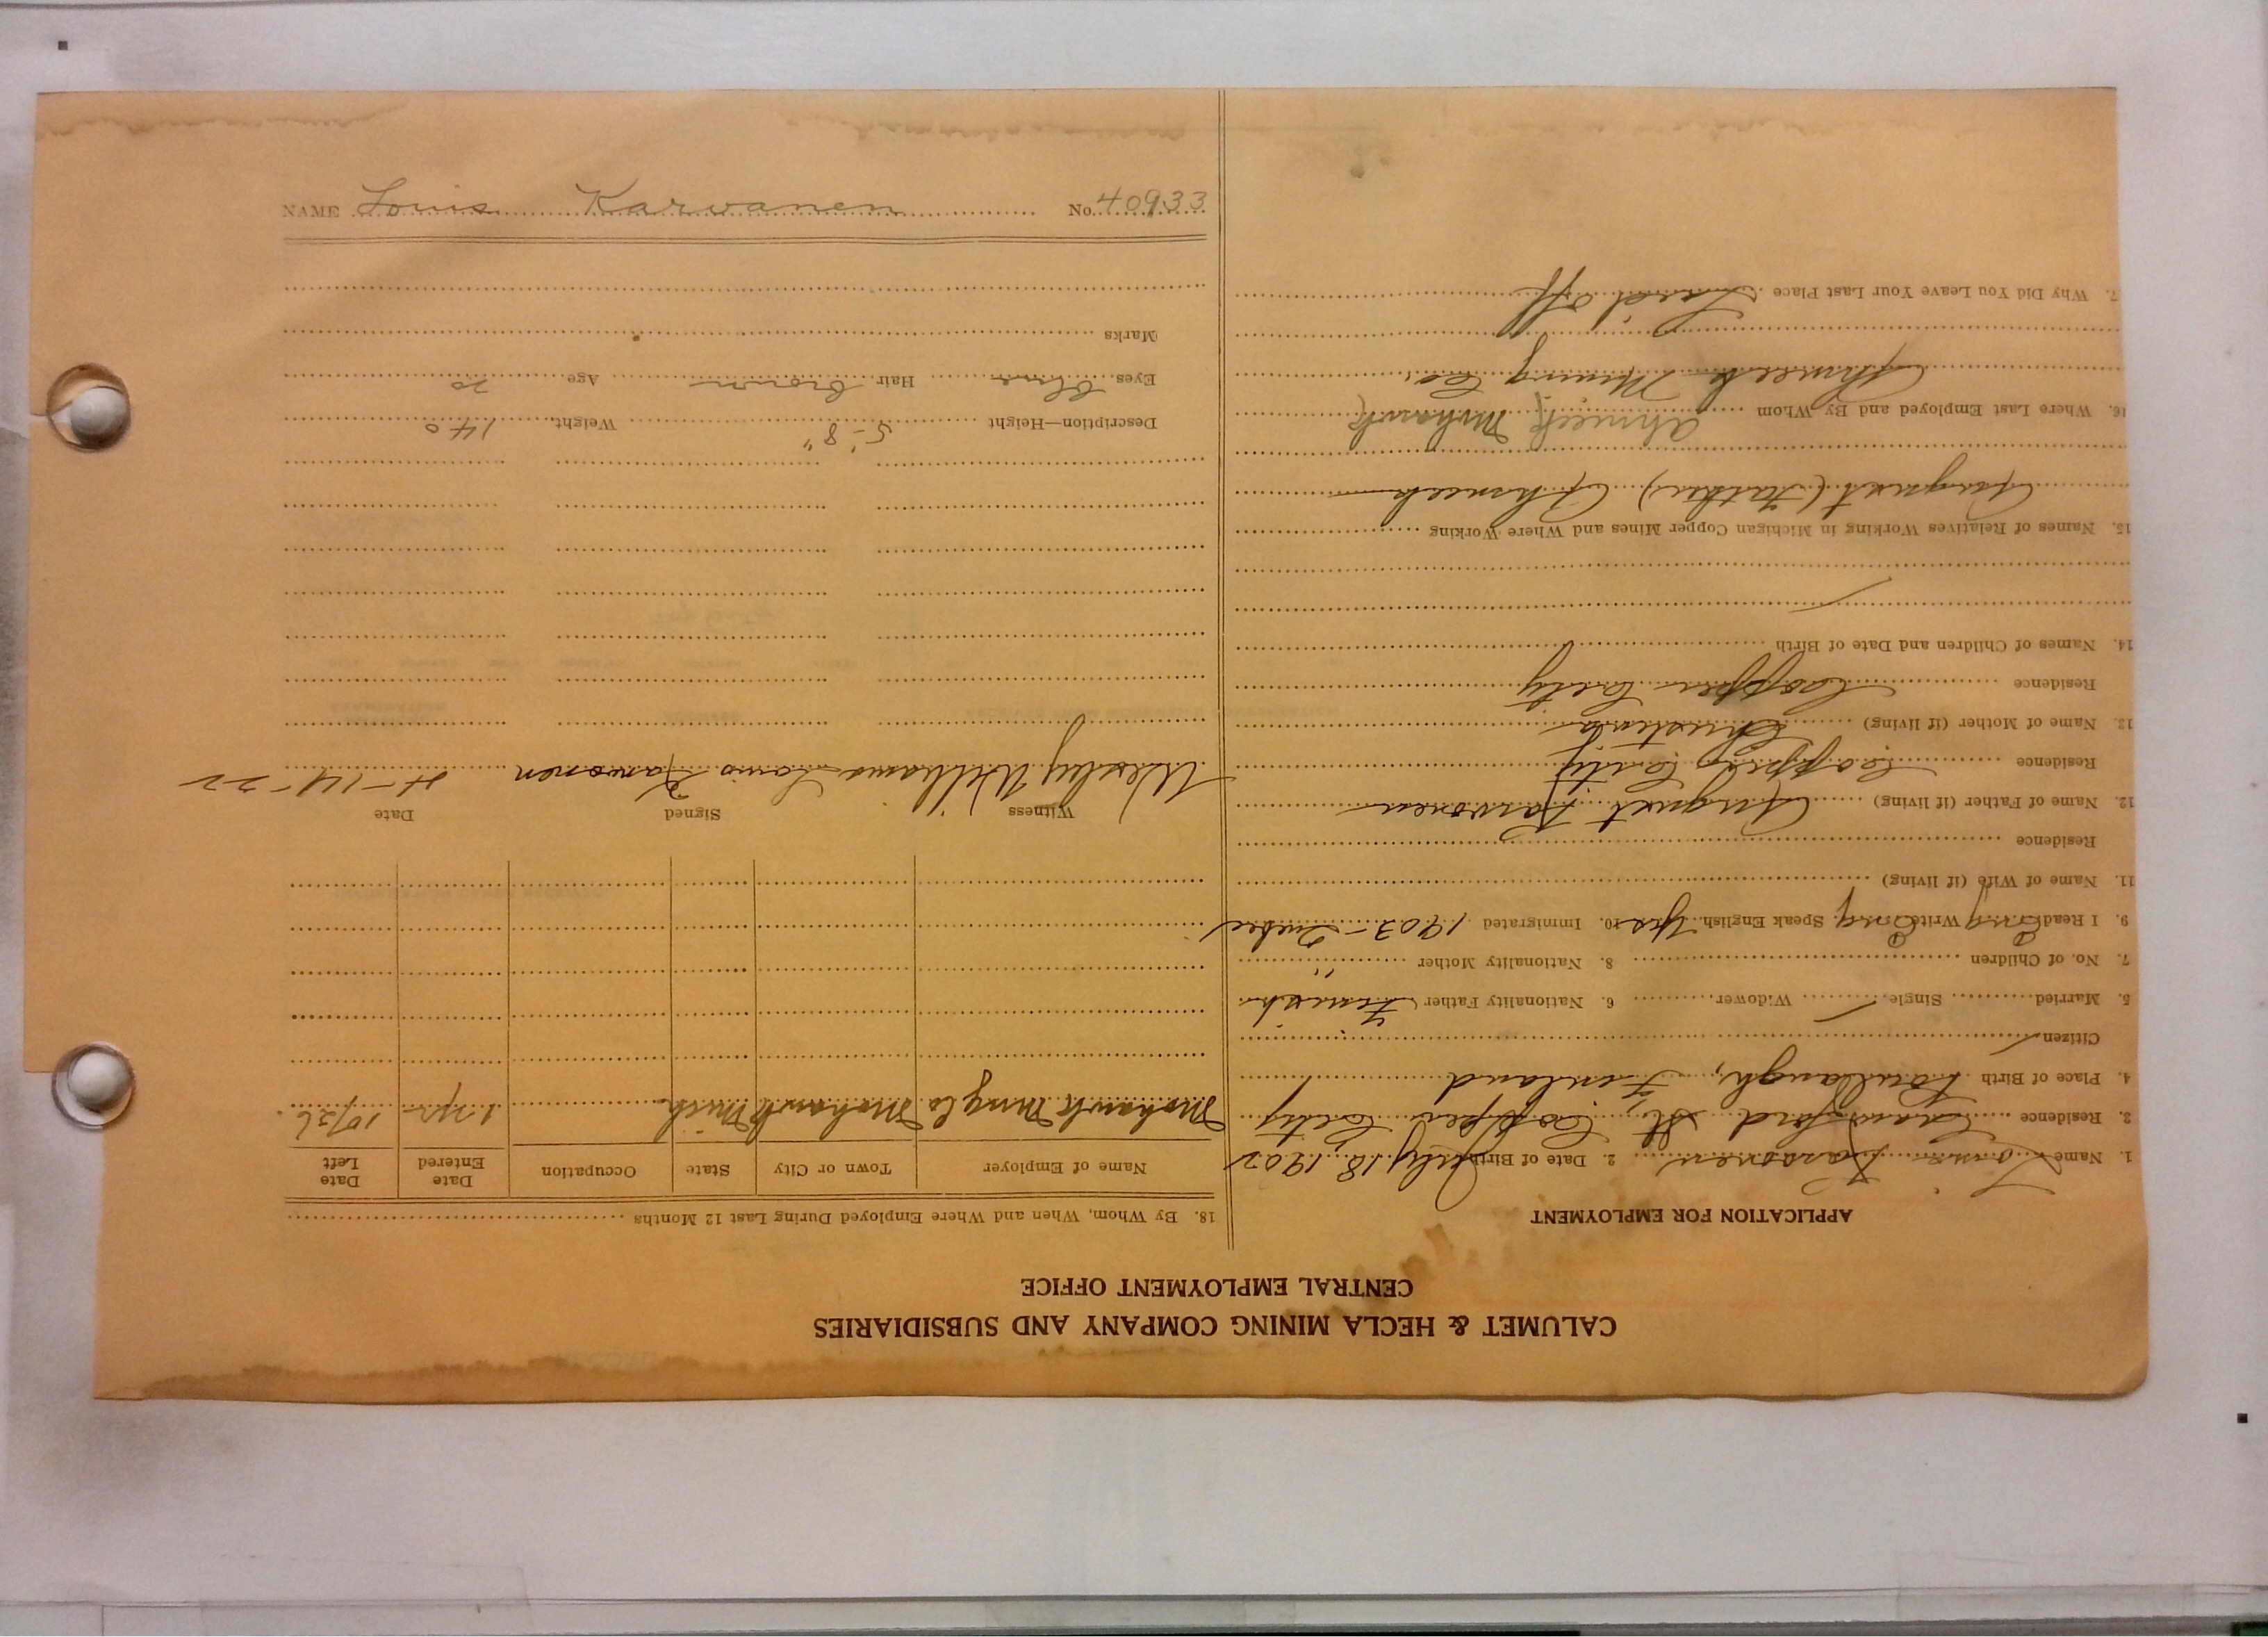 CALUMET & HECLA MINING COMPANY AND SUBSIDIARIES
CENTRAL EMPLOYMENT OFFICE
APPLICATION FOR EMPLOYMENT
1. Name Louis Karvonen 2. Date of Birth July 18 1902
3. Residence Crawford St. Copper City
4. Place of Birth Finland
Citizen
5. Married Single Widower 6. Nationality Father Finnish
7. No. of Children 8. Nationality Mother "
9. I Read Eng Write Eng Speak English Yes 10. Immigrated 1903 - Quebec
11. Name of Wife (if living)
Residence
12. Name of Father (if living) August Karvonen
Residence Copper City
13. Name of Mother (if living) Christina
Residence Copper City
14. Names of Children and Date of Birth
15. Names of Relatives Working in Michigan Copper Mines and Where Working
August (Father) Ahmeek
16. Where Last Employed and By Whom Ahmeek, Mohawk,
Ahmeek Mining Co.
7. Why Did You Leave Your Last Place Laid off
18. By Whom, When and Where Employed During Last 12 Months
Name of Employer Town or City State Occupation Date Entered Date Left
Mohawk Mng Co Mohawk Mich 1 yr
Witness Signed Date
Wesley Williams Louis Karvonen 4-14-22
Description—Height 5'-8" Weight 140
Eyes Blue Hair Brown Age 20
Marks
NAME Louis Karvanen No. 40933